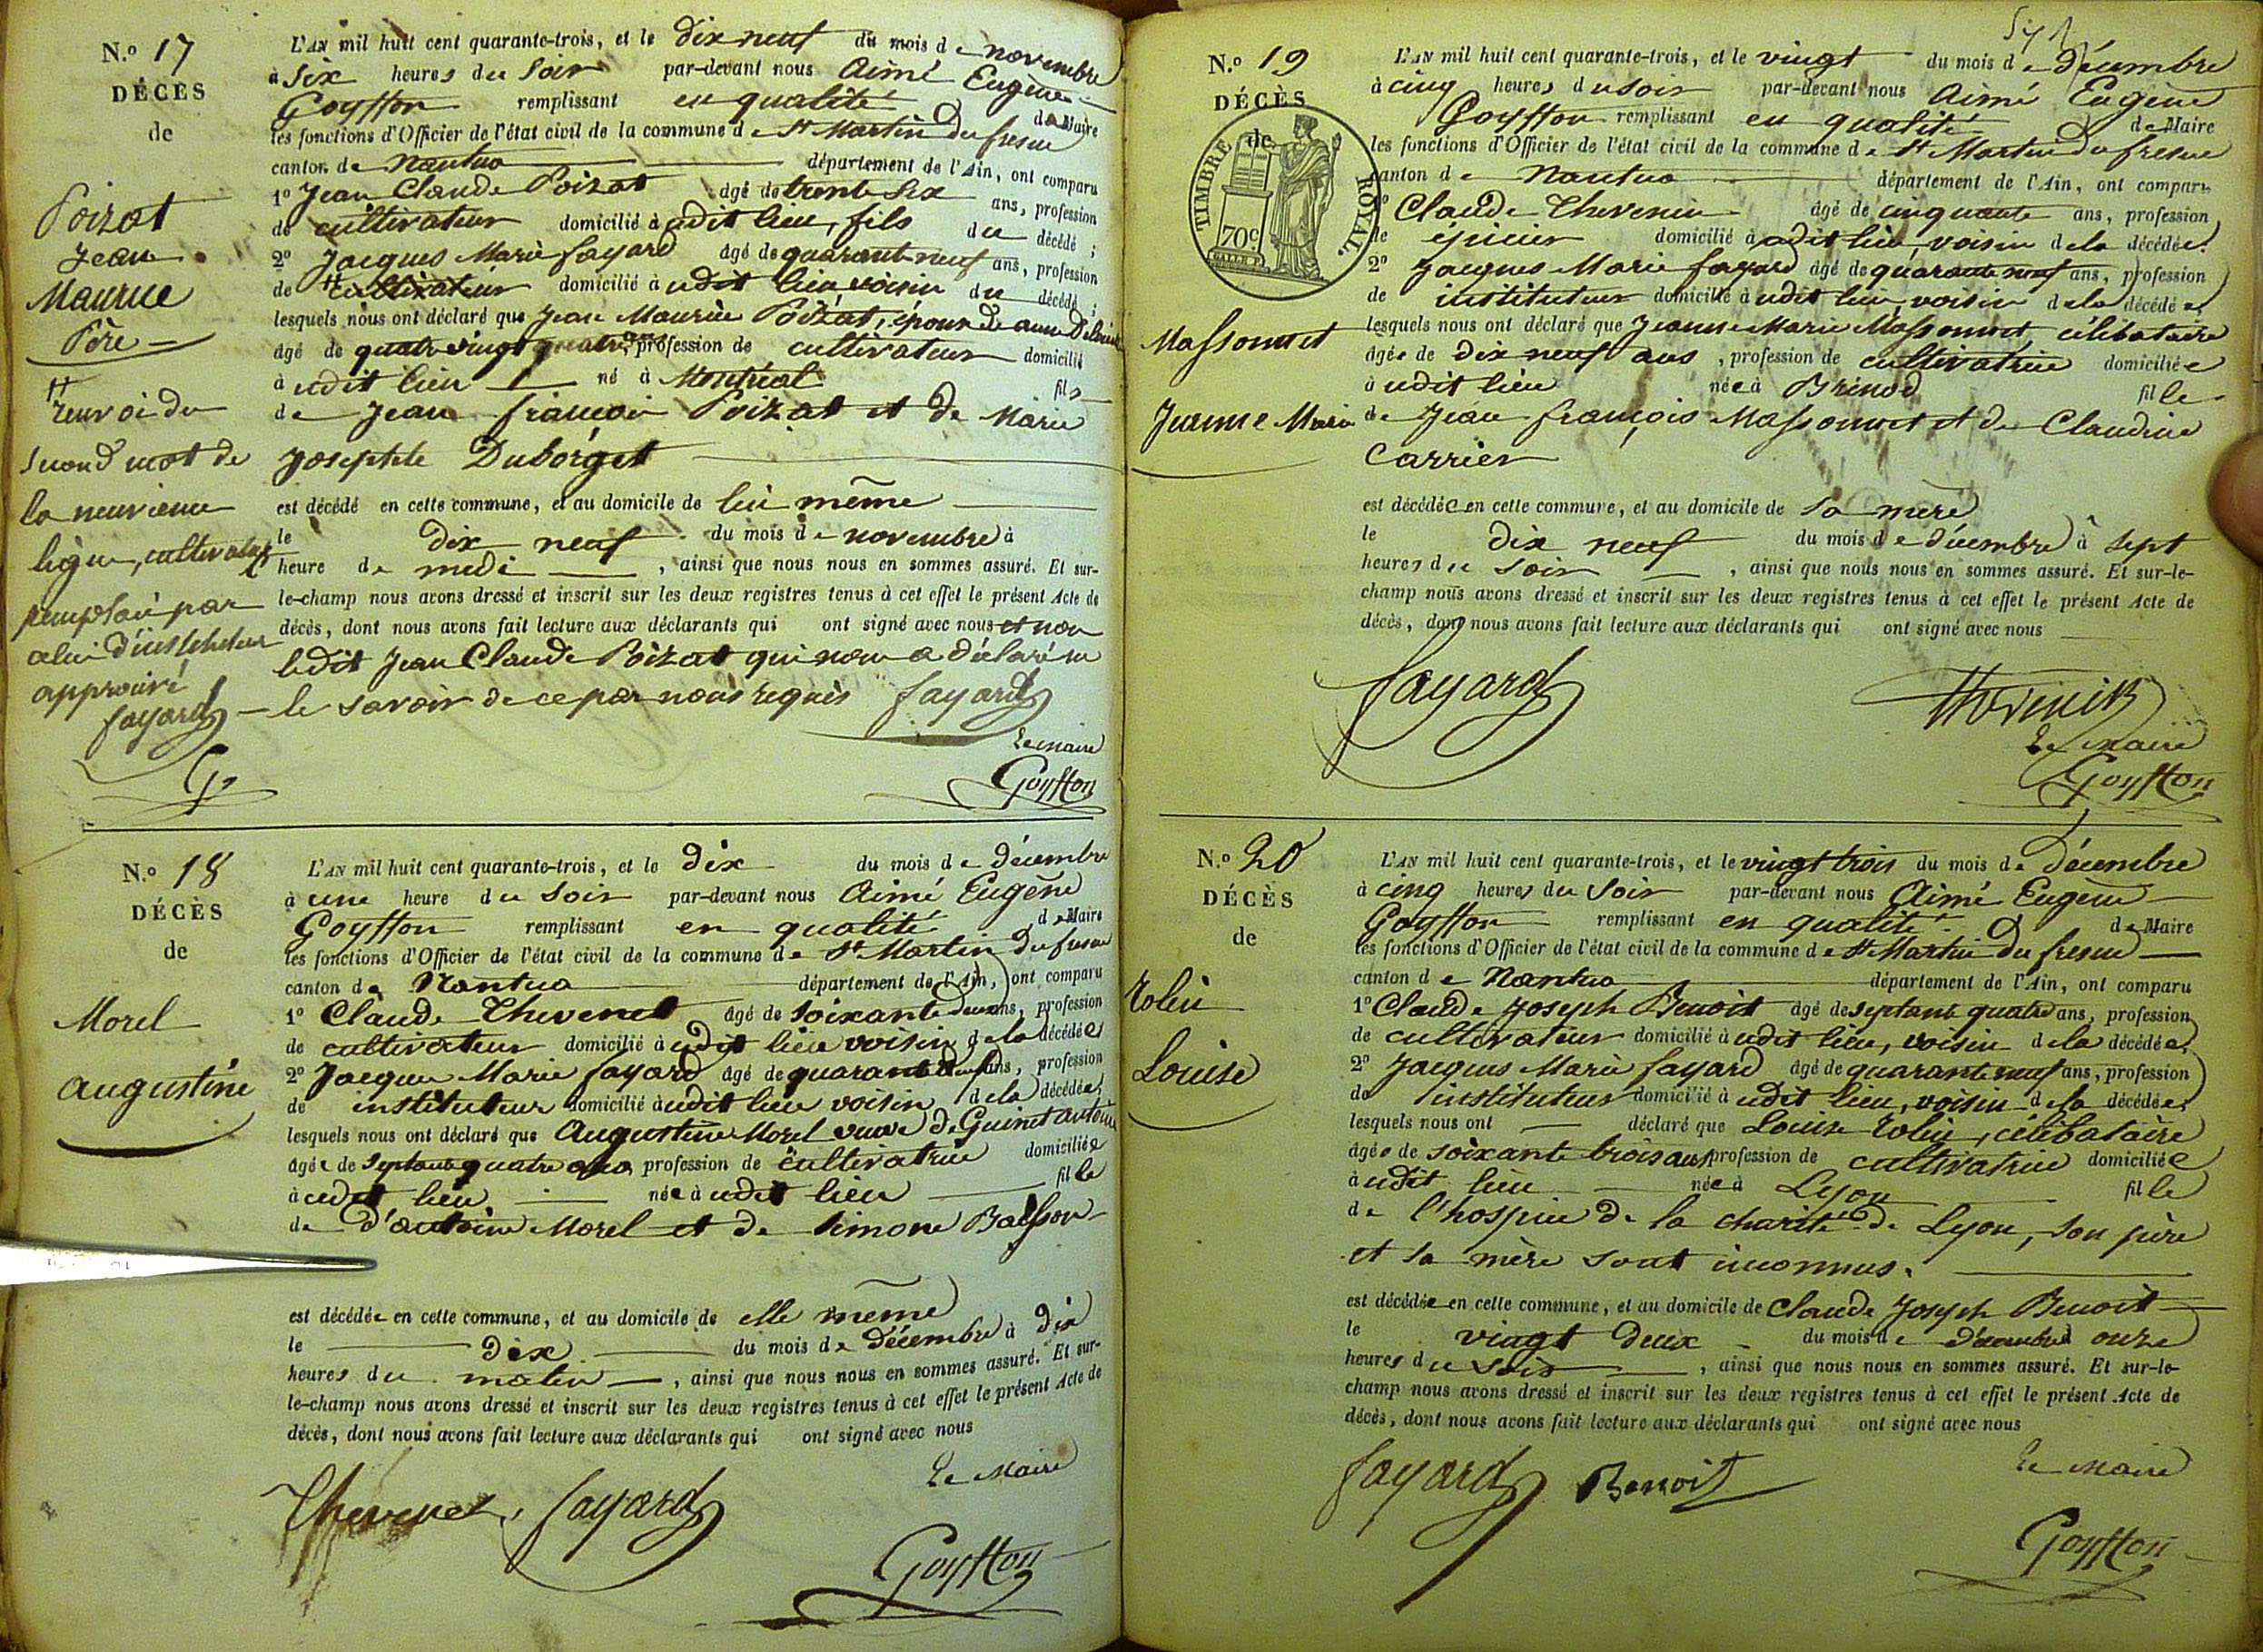 N.º 17
DÉCÈS
de
Poizat
Jean
Maurice
Père
renvoi du
second mot de
la neuvième
ligne, cultivateur
remplacé par
celui d'instituteur
approuvé
fayard
G.
L'AN mil huit cent quarante-trois, et le dix neuf du mois de novembre
à six heures du soir par-devant nous Aimé Eugène
Goyffon remplissant en qualité de Maire
les fonctions d'Officier de l'état civil de la commune de St Martin du fresne
canton de Nantua département de l'Ain, ont comparu
1º Jean Claude Poizat âgé de trente six ans, profession
de cultivateur domicilié à udit lieu, fils du décédé;
2º Jacques Marie fayard âgé de quarante neuf ans, profession
de cultivateur domicilié à udit lieu voisin du décédé;
lesquels nous ont déclaré que Jean Maurice Poizat, époux de anne
âgé de quatre vingt quatre ans, profession de cultivateur domicilié
à udit lieu né à Montréal fils
de Jean françois Poizat et de Marie
Josephte Duborget
est décédé en cette commune, et au domicile de lui même
le dix neuf du mois de novembre à
heure de midi, ainsi que nous nous en sommes assuré. Et sur-
le-champ nous avons dressé et inscrit sur les deux registres tenus à cet effet le présent Acte de
décès, dont nous avons fait lecture aux déclarants qui ont signé avec nous et non
ledit Jean Claude Poizat qui nous a déclaré ne
le savoir de ce par nous requis fayard
Le Maire
Goyffon
N.º 18
DÉCÈS
de
Morel
augustine
L'AN mil huit cent quarante-trois, et le dix du mois de décembre
à une heure du soir par-devant nous Aimé Eugène
Goyffon remplissant en qualité de Maire
les fonctions d'Officier de l'état civil de la commune de St Martin du fresne
canton de Nantua département de l'Ain, ont comparu
1º Claude Thevenet âgé de soixante deux ans, profession
de cultivateur domicilié à udit lieu voisin de la décédée;
2º Jacques Marie fayard âgé de quarante neuf ans, profession
de instituteur domicilié à udit lieu voisin de la décédée;
lesquels nous ont déclaré que Augustine Morel veuve de Guinet antoine
âgée de septante quatre ans, profession de cultivatrice domiciliée
à udit lieu née à udit lieu fille
de d'antoine Morel et de Simone Balsson
est décédée en cette commune, et au domicile de elle même
le dix du mois de décembre à dix
heures du matin, ainsi que nous nous en sommes assuré. Et sur-
le-champ nous avons dressé et inscrit sur les deux registres tenus à cet effet le présent Acte de
décès, dont nous avons fait lecture aux déclarants qui ont signé avec nous
Le Maire
Thevenet fayard
Goyffon
N.º 19
DÉCÈS
de
TIMBRE ROYAL.
70c
Massonnet
Jeanne Marie
L'AN mil huit cent quarante-trois, et le vingt du mois de décembre
à cinq heures du soir par-devant nous Aimé Eugène
Goyffon remplissant en qualité de Maire
les fonctions d'Officier de l'état civil de la commune de St Martin du fresne
canton de Nantua département de l'Ain, ont comparu
1º Claude Thevenin âgé de cinquante ans, profession
de épicier domicilié à udit lieu, voisin de la décédée;
2º Jacques Marie fayard âgé de quarante neuf ans, profession
de instituteur domicilié à udit lieu, voisin de la décédée;
lesquels nous ont déclaré que Jeanne Marie Massonnet, célibataire
âgée de dix neuf ans, profession de cultivatrice domiciliée
à udit lieu née à Brénod fille
de Jean françois Massonnet et de Claudine
Carrier
est décédée en cette commune, et au domicile de sa mère
le dix neuf du mois de décembre à sept
heures du soir, ainsi que nous nous en sommes assuré. Et sur-le-
champ nous avons dressé et inscrit sur les deux registres tenus à cet effet le présent Acte de
décès, dont nous avons fait lecture aux déclarants qui ont signé avec nous
fayard Thevenin
Le Maire
Goyffon
N.º 20
DÉCÈS
de
Tolin
Louise
L'AN mil huit cent quarante-trois, et le vingt trois du mois de décembre
à cinq heures du soir par-devant nous Aimé Eugène
Goyffon remplissant en qualité de Maire
les fonctions d'Officier de l'état civil de la commune de St Martin du fresne
canton de Nantua département de l'Ain, ont comparu
1º Claude Joseph Benoit âgé de septante quatre ans, profession
de cultivateur domicilié à udit lieu, voisin de la décédée;
2º Jacques Marie fayard âgé de quarante neuf ans, profession
de instituteur domicilié à udit lieu, voisin de la décédée;
lesquels nous ont déclaré que Louise Tolin, célibataire
âgée de soixante trois ans profession de cultivatrice domiciliée
à udit lieu née à Lyon fille
de l'hospice de la charité de Lyon, son père
et sa mère sont inconnus.
est décédée en cette commune, et au domicile de Claude Joseph Benoit
le vingt deux du mois de décembre onze
heures du soir, ainsi que nous nous en sommes assuré. Et sur-le-
champ nous avons dressé et inscrit sur les deux registres tenus à cet effet le présent Acte de
décès, dont nous avons fait lecture aux déclarants qui ont signé avec nous
fayard Benoit
Le Maire
Goyffon